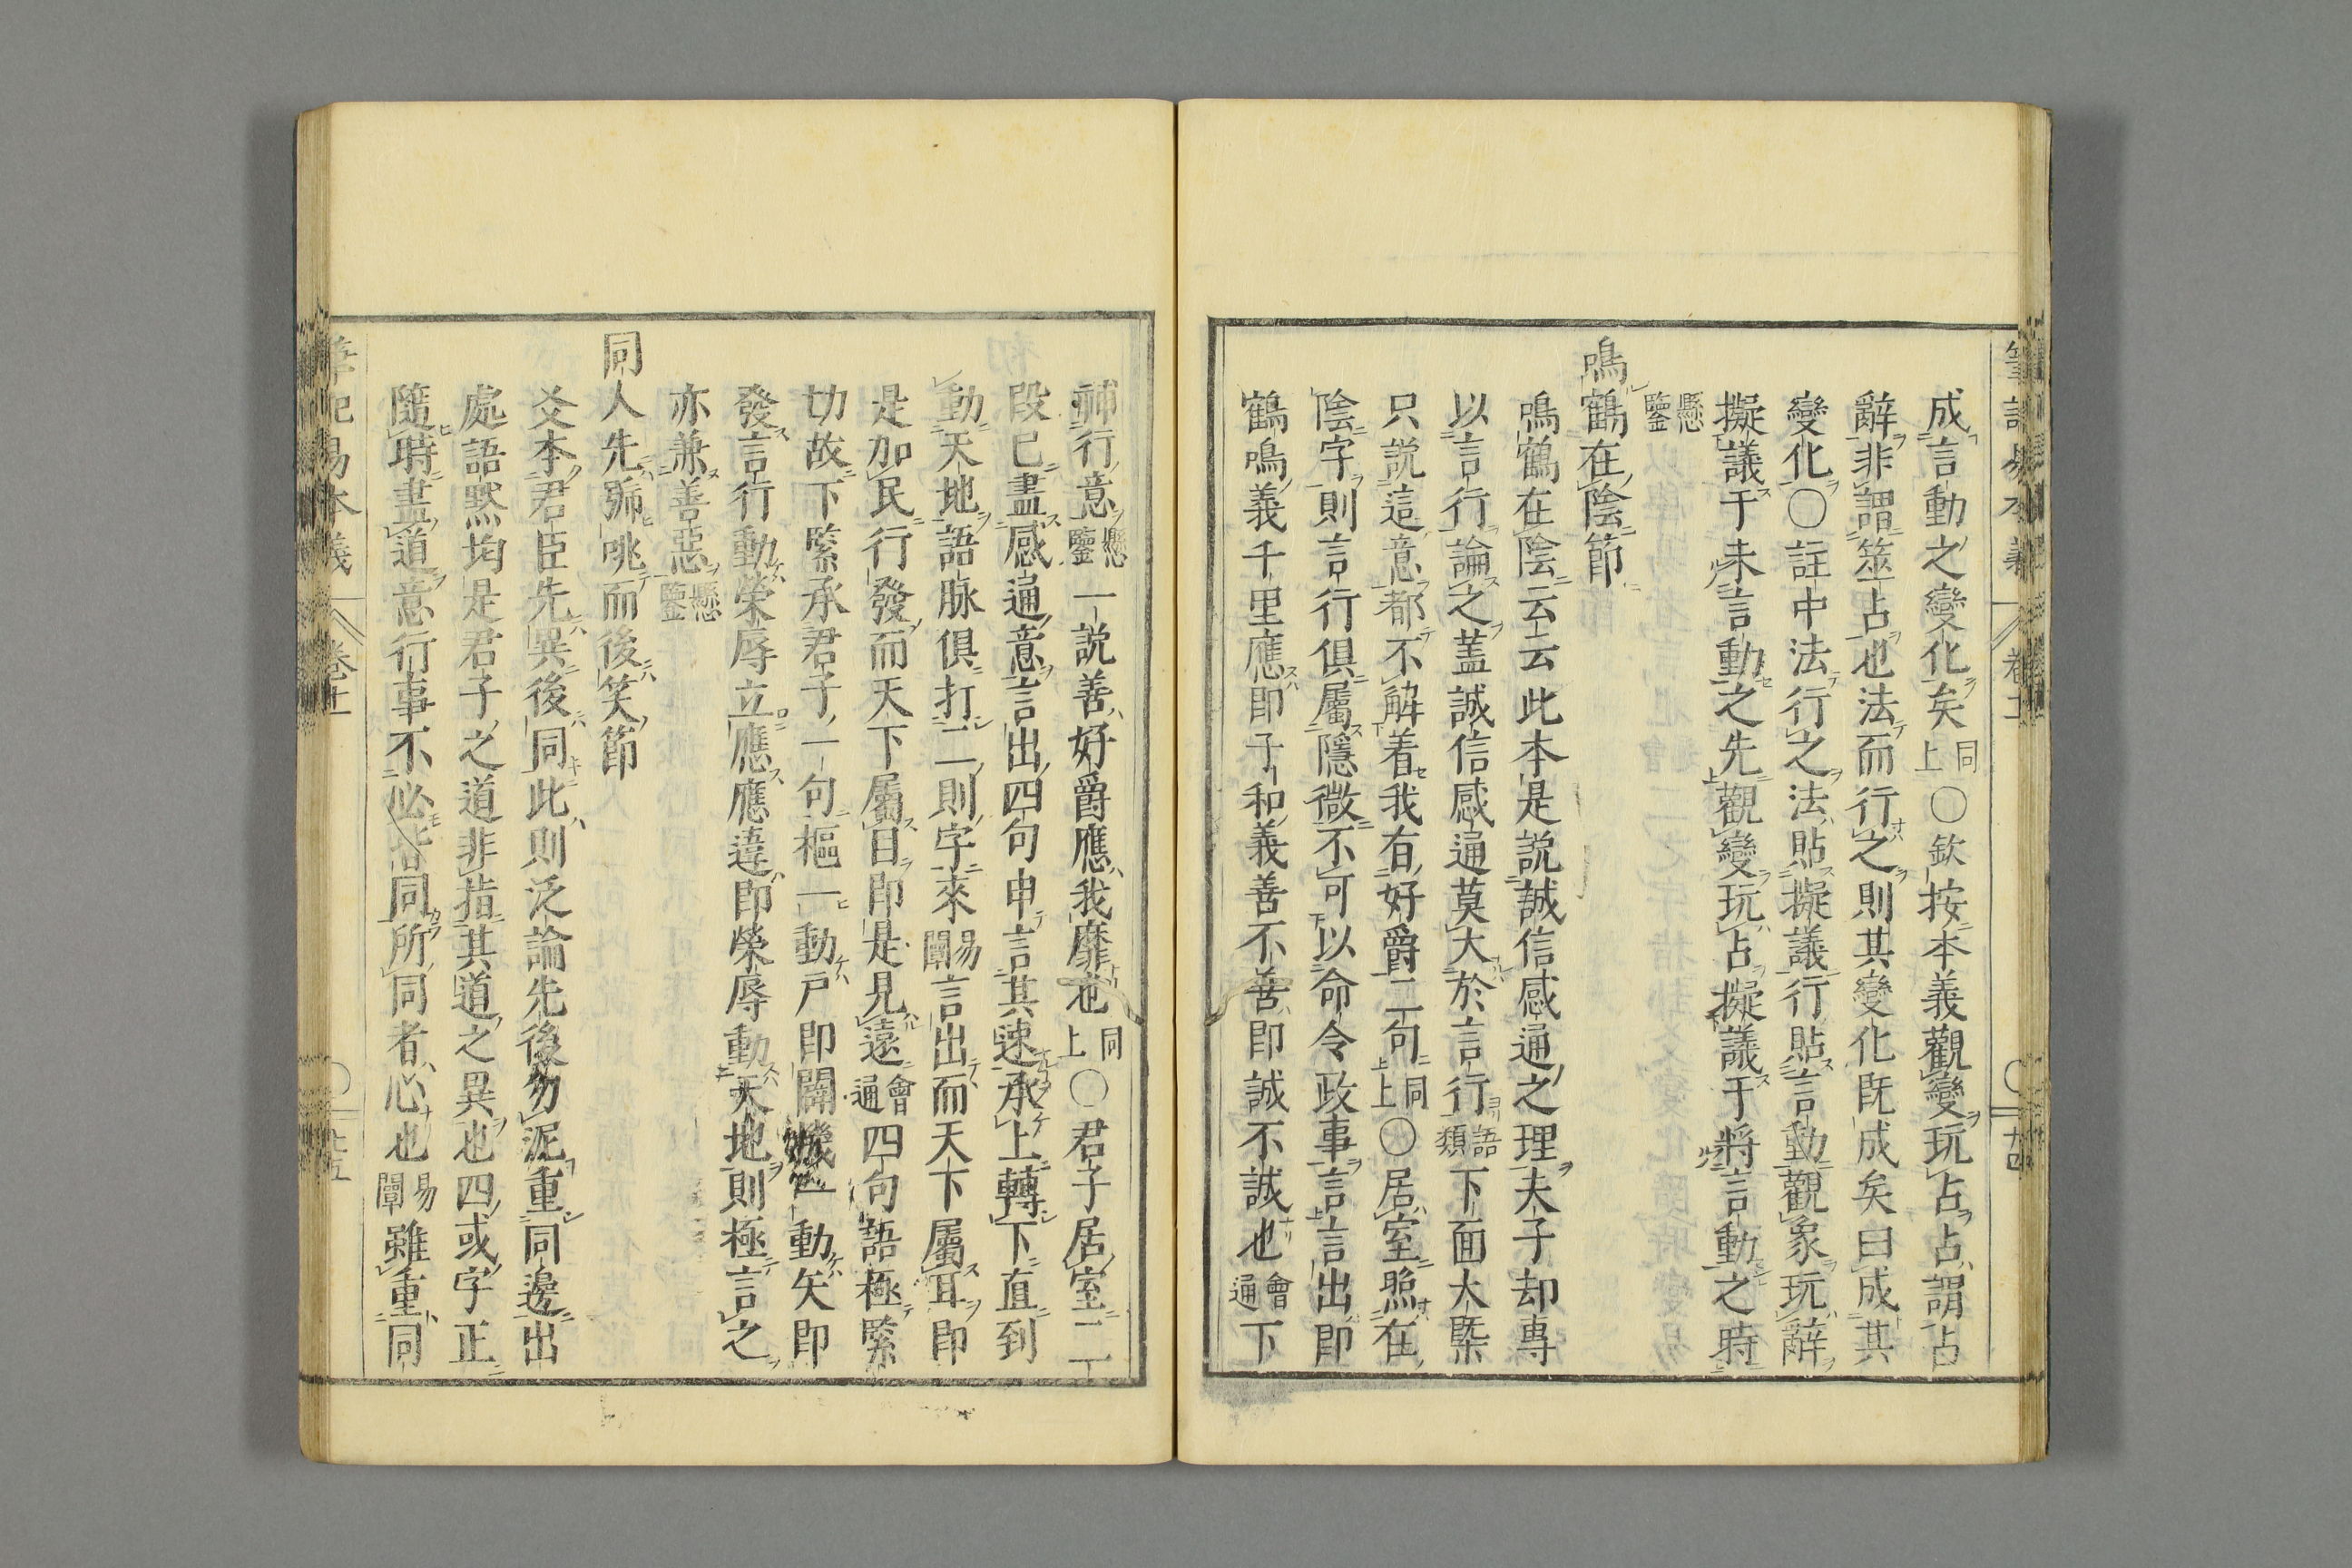 成言動之變化矣同上○欽按本義觀變玩占占謂占
辭非謂筮占也法而行之則其變化既成矣曰成其
變化○註中法行之法貼擬議行貼言動觀象玩辭
擬議于未言動之先觀變玩占擬議于將言動之時
懸鑒
鳴鶴在陰節
鳴鶴在陰云云此本是説誠信感通之理夫子却專
以言行論之蓋誠信感通莫大於言行語類下面大槩
只説這意都不解着我有好爵二句同上○居室照在
陰字則言行俱屬隱微不可以命令政事言言出即
鶴鳴義千里應即子和義善不善即誠不誠也會通下
補行意懸鑒一説善好爵應我靡也同上○君子居室二
段已盡感通意言出四句申言其速承上轉下直到
動天地語脉俱打二則字來易闡言出而天下屬耳即
是加民行發而天下屬目即是見遠會通四句語極緊
切故下緊承君子一句樞一動戸即闢機一動矢即
發言行動榮辱立應應違即榮辱動天地則極言之
亦兼善惡懸鑒
同人先號咷而後笑節
爻本君臣先異後同此則泛論先後勿泥重同邊出
處語黙均是君子之道非指其道之異也四或字正
隨時盡道意行事不必皆同所同者心也易闡雖重同
筆記易本義 卷十一